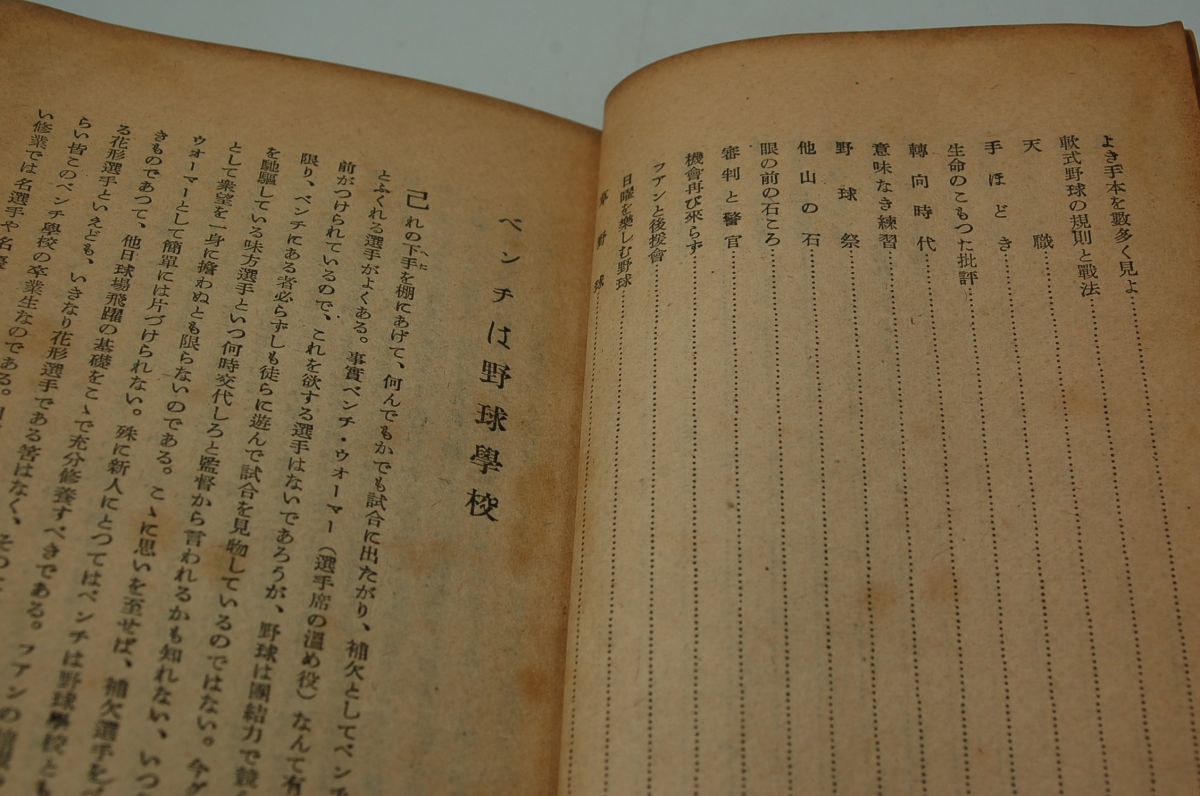 よき手本を数多く見よ
軟式野球の規則と戰法
天職
手ほどき
生命のこもつた批評
轉向時代
意味なき練習
野球祭
他山の石
眼の前の石ころ
審判と警官
機會再び來らず
フアンと後援會
日曜を樂しむ野球
野球
ベンチは野球學校
己れの下手を棚にあげて、何んでもかでも試合に出たがり、補欠としてベン
へた
とふくれる選手がよくある。事實ベンチ・ウォーマー（選手席の溫め役）なんて有
前がつけられているので、これを欲する選手はないであろうが、野球は團結力で
限り、ベンチにある者必らずしも徒らに遊んで試合を見物しているのではない。今
を馳驅している味方選手といつ何時交代しろと監督から言われるかも知れない、いつ
として衆望を一身に擔わぬとも限らないのである。こゝに思いを至せば、補欠選手を
ウォーマーとして簡單には片づけられない。殊に新人にとつてはベンチは野球學校とも
きものであつて、他日球場飛躍の基礎をこゝで充分修養すべきである。フアンの
る花形選手といえども、いきなり花形選手である筈はなく、そ
らい皆このベンチ學校の卒業生なのである。
い修業では名選手や名優